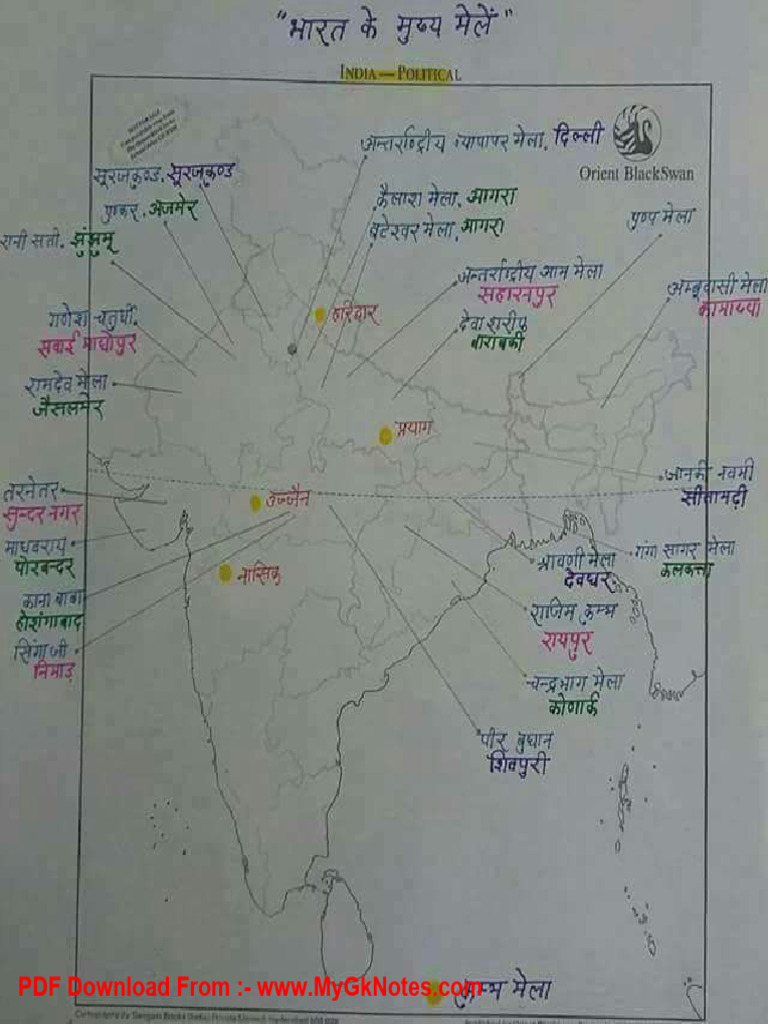 "भारत के मुख्य मेलें"
INDIA—POLITICAL
अन्तर्राष्ट्रीय व्यापापर मेला, दिल्ली
Orient BlackSwan
सूरजकुण्ड, सूरजकुण्ड
पुष्कर, अजमेर
कैलाश मेला, आगरा
वटेश्वर मेला, आगरा
पुण्य मेला
रानी सती, झुंझुनू
अन्तर्राष्ट्रीय आम मेला
सहारनपुर
अम्बूवासी मेला
कामाख्या
गणेश चतुर्थी.
सवाई माधोपुर
हरिद्वार
देवा शरीफ
बाराबंकी
रामदेव मेला
जैसलमेर
प्रयाग
जानकी नवमी
सीतामढ़ी
तरनेतर
सुन्दरनगर
उज्जैन
माधवराय
पोरबन्दर
नासिक
श्रावणी मेला
देवघर
गंगा सागर मेला
कलकत्ता
काना बाबा
होशंगाबाद
राजिम कुम्भ
रायपुर
सिंगा जी
निमाड़
चन्द्रभाग मेला
कोणार्क
पीर बुधान
शिवपुरी
कुम्भ मेला
PDF Download From :- www.MyGkNotes.com